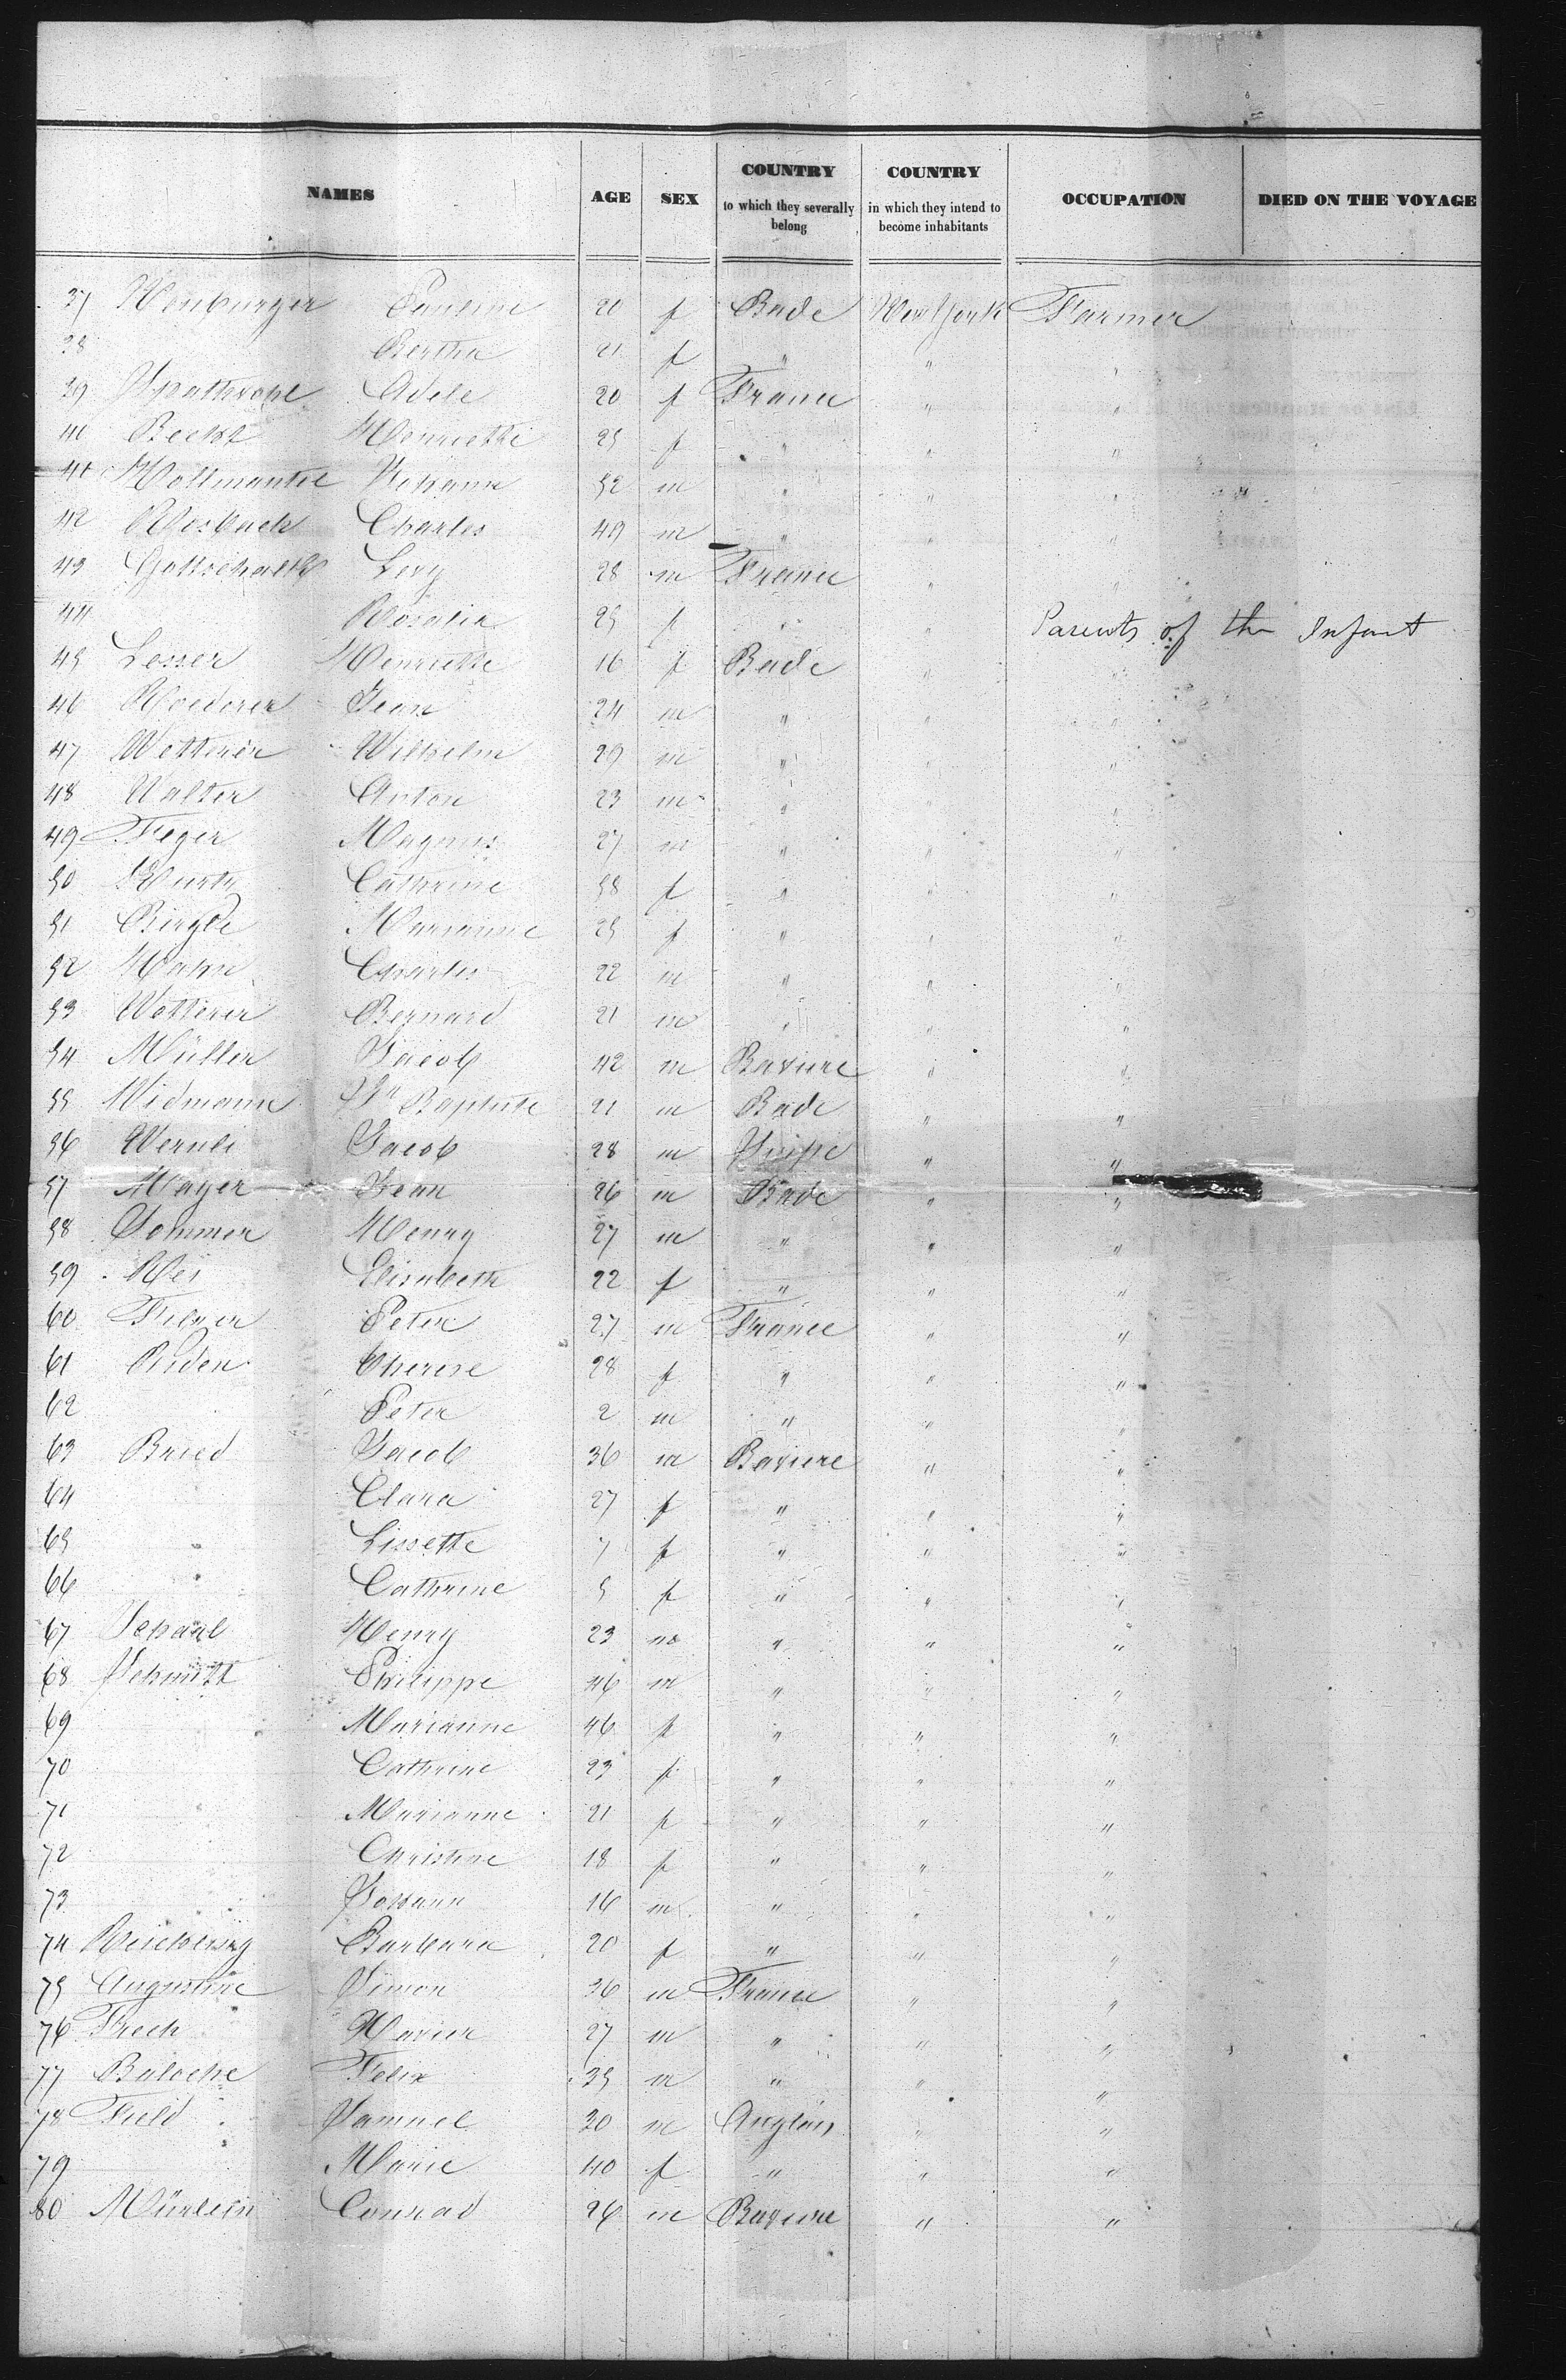 NAMES AGE SEX COUNTRY to which they severally belong COUNTRY in which they intend to become inhabitants OCCUPATION DIED ON THE VOYAGE
37 Neuburger Pauline 20 f Bade New York Farmer
38 Bertha 21 f " " "
39 Adele 20 f France " "
40 Becht Henriette 25 f " " "
41 52 m " " "
42 Rosbach Charles 49 m " " "
43 Gottschalk Levy 28 m France " "
44 Rosalia 25 f " " Parents of the Infant
45 Lesser Henriette 16 f Bade " "
46 Roederer Jean 24 m " " "
47 Wetterer Wilhelm 29 m " " "
48 Walter Anton 23 m " " "
49 Feger Magnus 27 m " " "
50 Cathrine 58 f " " "
51 Marianne 25 f " " "
52 Hahn Charles 22 m " " "
53 Wetterer Bernard 21 m " " "
54 Müller Jacob 42 m Baviere " "
55 Widmann Jn Baptiste 21 m Bade " "
56 Wernli Jacob 28 m " "
57 Mayer Jean 26 m Bade " "
58 Sommer Henry 27 m " " "
59 Elisabeth 22 f " " "
60 Peter 27 m France " "
61 Therese 28 f " " "
62 Peter 2 m " " "
63 Bried Jacob 36 m Baviere " "
64 Clara 27 f " " "
65 Lissette 7 f " " "
66 Cathrine 5 f " " "
67 Schaub Henry 23 m " " "
68 Schmitt Philippe 46 m " " "
69 Marianne 46 f " " "
70 Cathrine 23 f " " "
71 Marianne 21 f " " "
72 Christine 18 f " " "
73 Johann 16 m " " "
74 Barbara 20 f " " "
75 Augustine Simon 36 m France " "
76 Frech Xavier 27 m " " "
77 Baloche Felix 35 m " " "
78 Field Samuel 30 m Anglais " "
79 Marie 40 f " " "
80 Mürlein Conrad 26 m Baviere " "